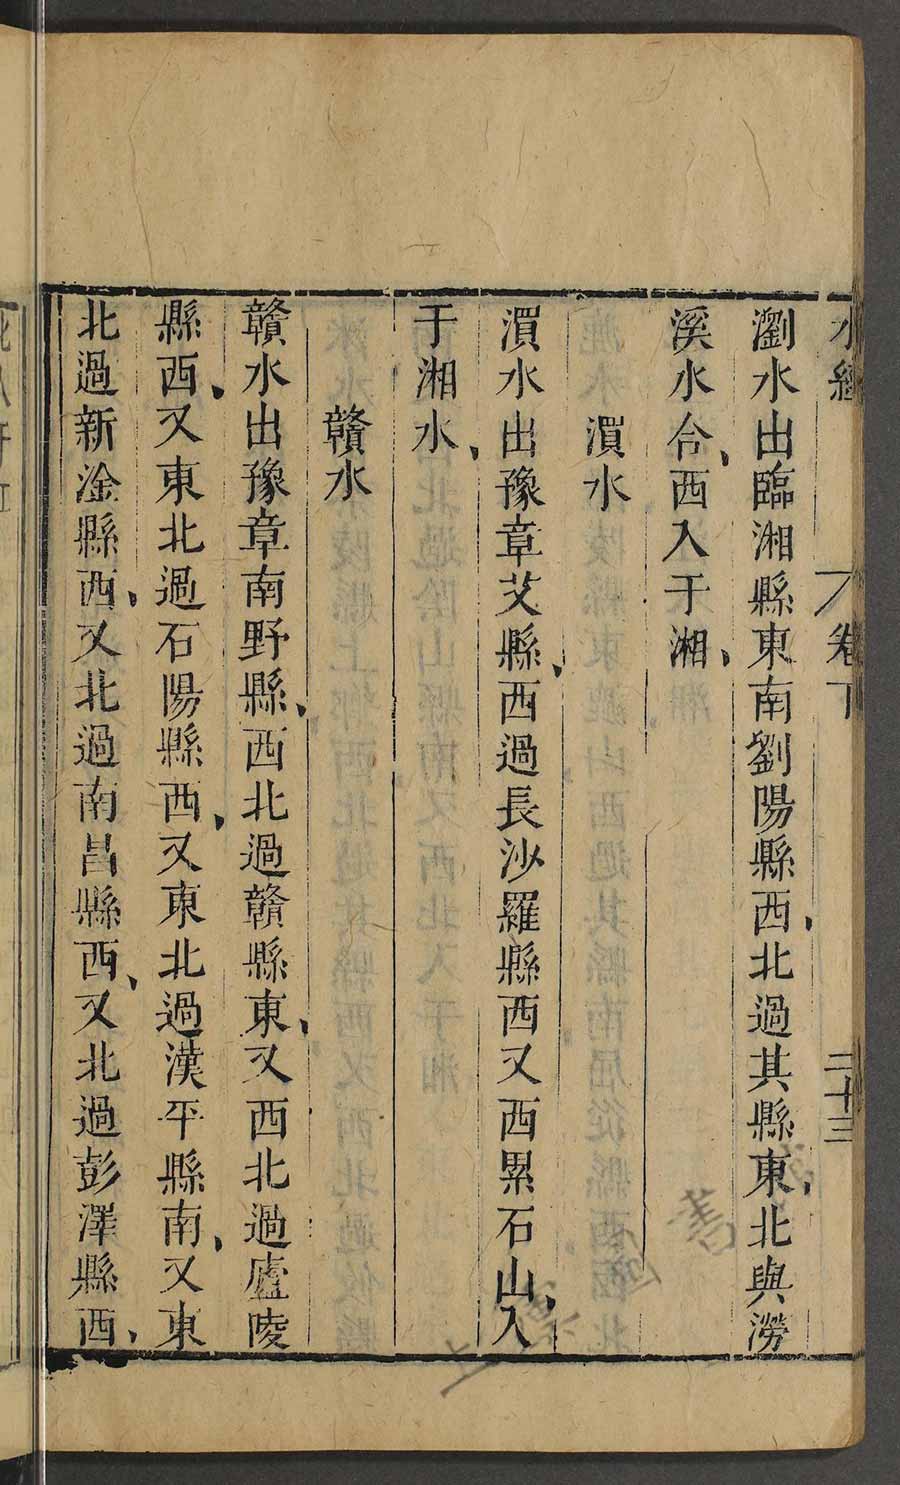 水經
卷下
二十三
瀏水出臨湘縣東南劉陽縣、西北過其縣東、北與澇
溪水合、西入于湘、
溳水
溳水出豫章艾縣、西過長沙羅縣西又西累石山、入
于湘水、
贛水
贛水出豫章南野縣、西北過贛縣東、又西北過廬陵
縣西、又東北過石陽縣西、又東北過漢平縣南、又東
北過新淦縣西、又北過南昌縣西、又北過彭澤縣西、